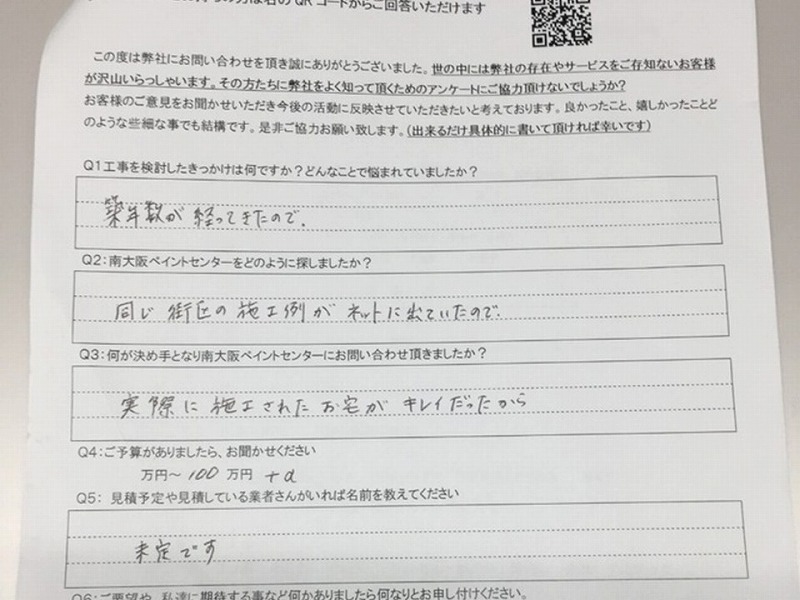 QRコードからご回答いただけます
この度は弊社にお問い合わせを頂き誠にありがとうございました。世の中には弊社の存在やサービスをご存知ないお客様
が沢山いらっしゃいます。その方たちに弊社をよく知って頂くためのアンケートにご協力頂けないでしょうか?
お客様のご意見をお聞かせいただき今後の活動に反映させていただきたいと考えております。良かったこと、嬉しかったことど
のような些細な事でも結構です。是非ご協力お願い致します。(出来るだけ具体的に書いて頂ければ幸いです)
Q1工事を検討したきっかけは何ですか?どんなことで悩まれていましたか?
築年数が経ってきたので。
Q2:南大阪ペイントセンターをどのように探しましたか?
同じ街区の施工例がネットに出ていたので。
Q3:何が決め手となり南大阪ペイントセンターにお問い合わせ頂きましたか?
実際に施工されたお宅がキレイだったから
Q4:ご予算がありましたら、お聞かせください
万円~100万円 +α
Q5: 見積予定や見積している業者さんがいれば名前を教えてください
未定です
Q6:ご要望や、私達に期待する事など何かありましたら何なりとお申し付けください。